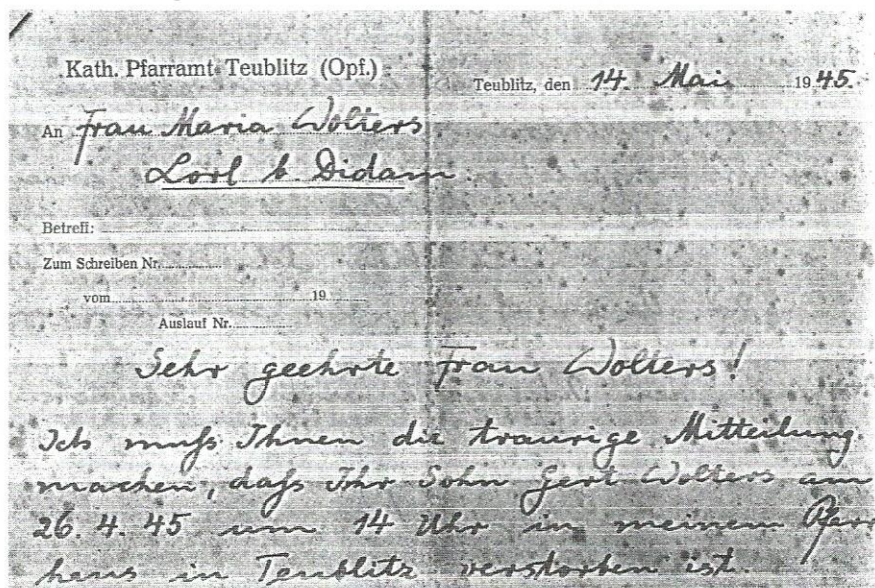 Kath. Pfarramt Teublitz (Opf.)
Teublitz, den 14. Mai 1945.
An Frau Maria Wolters
Loil b. Didam.
Betreff:
Zum Schreiben Nr.
vom 19
Auslauf Nr.
Sehr geehrte Frau Wolters!
Ich muß Ihnen die traurige Mitteilung
machen, daß Ihr Sohn Gert Wolters am
26. 4. 45 um 14 Uhr in meinem Pfarr
haus in Teublitz verstorben ist.